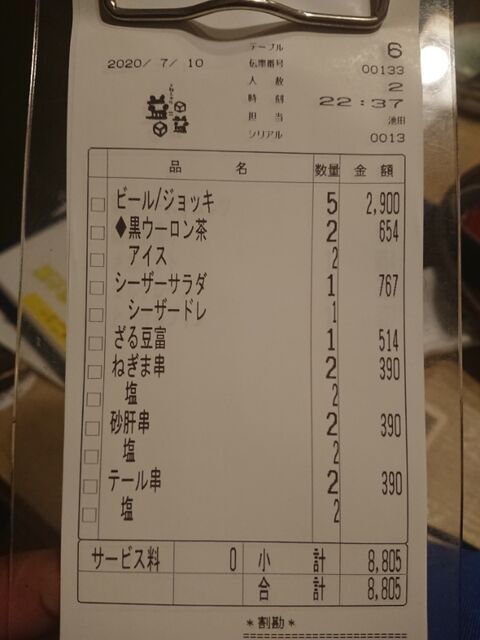 テーブル 6
2020/ 7/ 10 伝票番号 00133
人 数 2
時 刻 22:37
担 当 池田
シリアル 0013
品 名 数量 金 額
ビール/ジョッキ 5 2,900
◆黒ウーロン茶 2 654
アイス 2
シーザーサラダ 1 767
シーザードレ 1
ざる豆富 1 514
ねぎま串 2 390
塩 2
砂肝串 2 390
塩 2
テール串 2 390
塩 2
サービス料 0 小 計 8,805
合 計 8,805
*割勘*